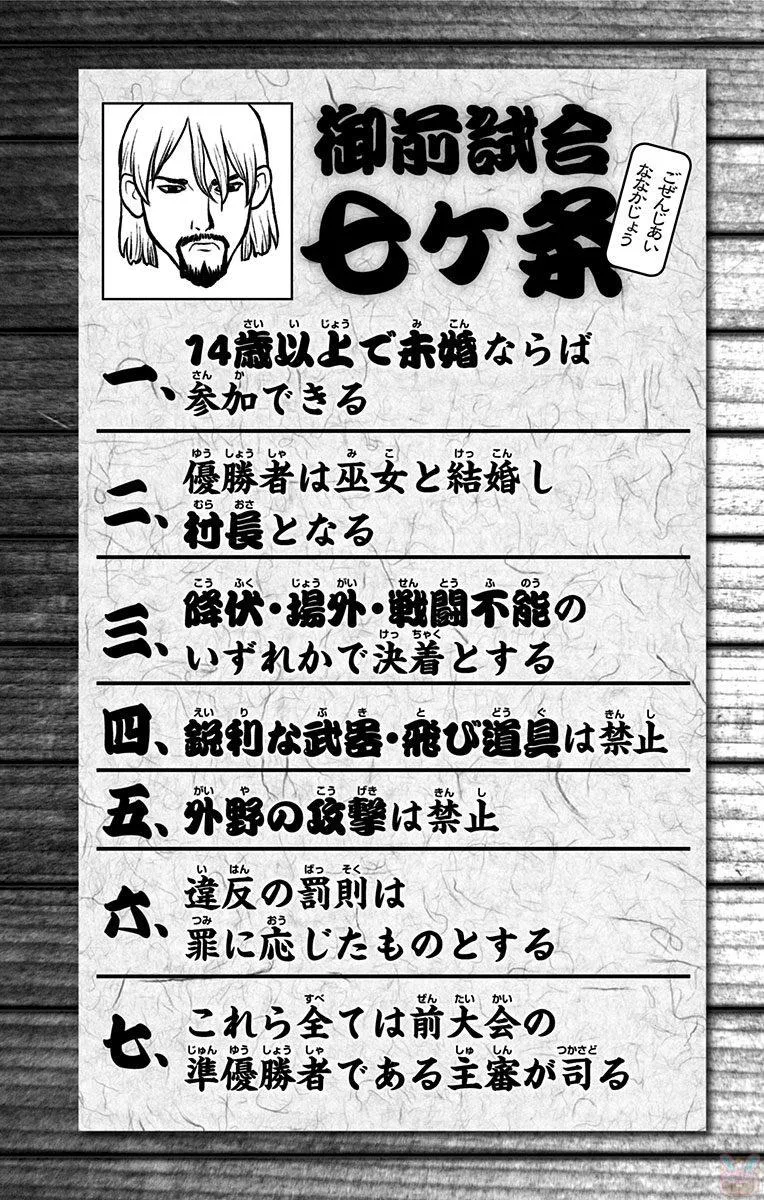 御前試合
七ケ条
ごぜんじあい
ななかじょう
一、14歳以上で未婚ならば
参加できる
二、優勝者は巫女と結婚し
村長となる
三、降伏・場外・戦闘不能の
いずれかで決着とする
四、鋭利な武器・飛び道具は禁止
五、外野の攻撃は禁止
六、違反の罰則は
罪に応じたものとする
七、これら全ては前大会の
準優勝者である主審が司る